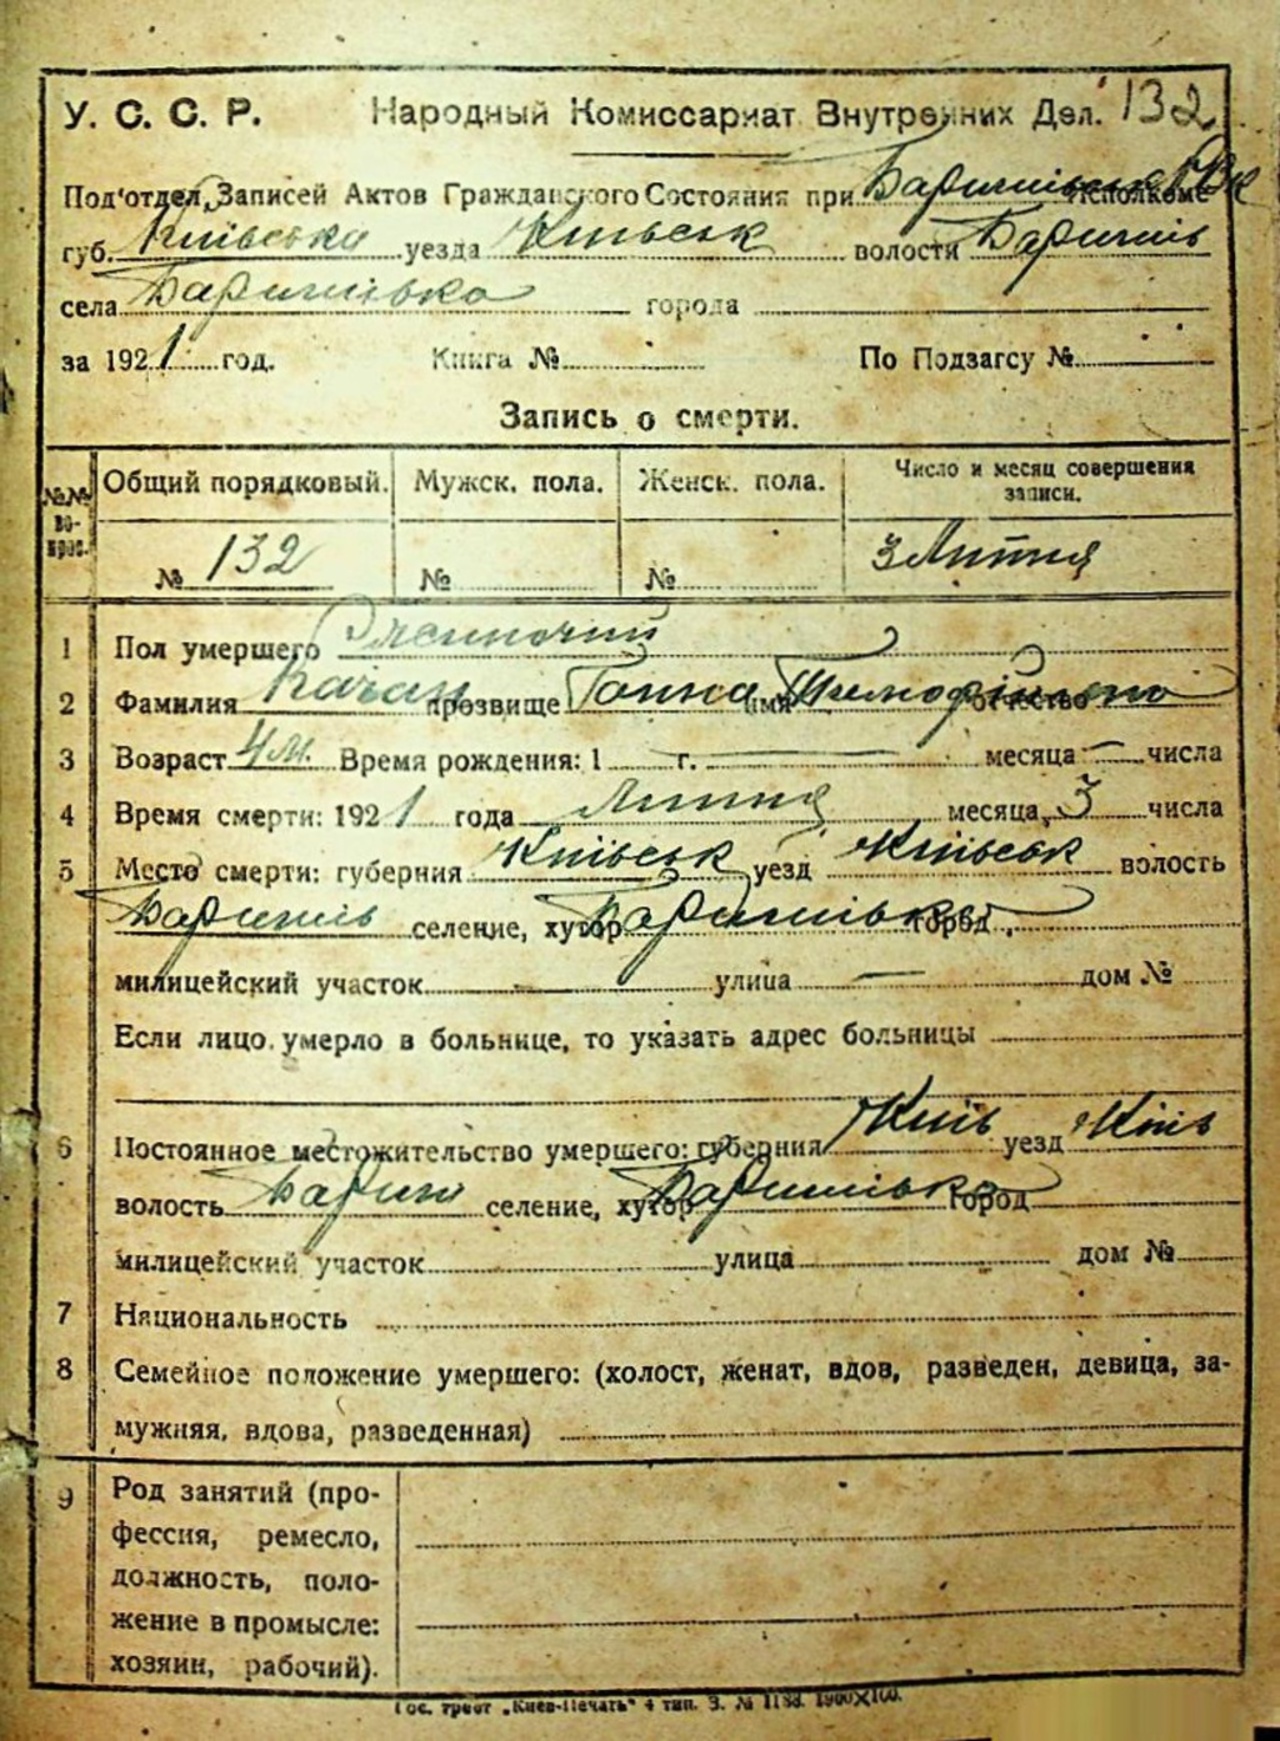 У. С. С. Р. Народный Комиссариат Внутренних Дел. 132
Под'отдел Записей Актов Гражданского Состояния при исполкоме
губ. Київська уезда Київськ волости Баришів
села Баришівка города
за 1921 год. Книга № По Подзагсу №
Запись о смерти.
№№ вопрос. Общий порядковый. Мужск. пола. Женск. пола. Число и месяц совершения записи.
№ 132 № № 3 Липня
1 Пол умершего
2 Фамилия Качан прозвище Ганна имя отчество
3 Возраст 4 м. Время рождения: 1 г. — месяца — числа
4 Время смерти: 1921 года Липня месяца 3 числа
5 Место смерти: губерния Київськ уезд Київськ волость
Баришів селение, хутор Баришівка город
милицейский участок — улица — дом №
Если лицо умерло в больнице, то указать адрес больницы
6 Постоянное местожительство умершего: губерния Київ уезд Київ
волость Бариш селение, хутор Баришівка город
милицейский участок улица дом №
7 Национальность
8 Семейное положение умершего: (холост, женат, вдов, разведен, девица, за-
мужняя, вдова, разведенная)
9 Род занятий (про-
фессия, ремесло,
должность, поло-
жение в промысле:
хозяин, рабочий).
Гос. трест „Киев-Печать" 4 тип. З. № 1188. 1900×100.